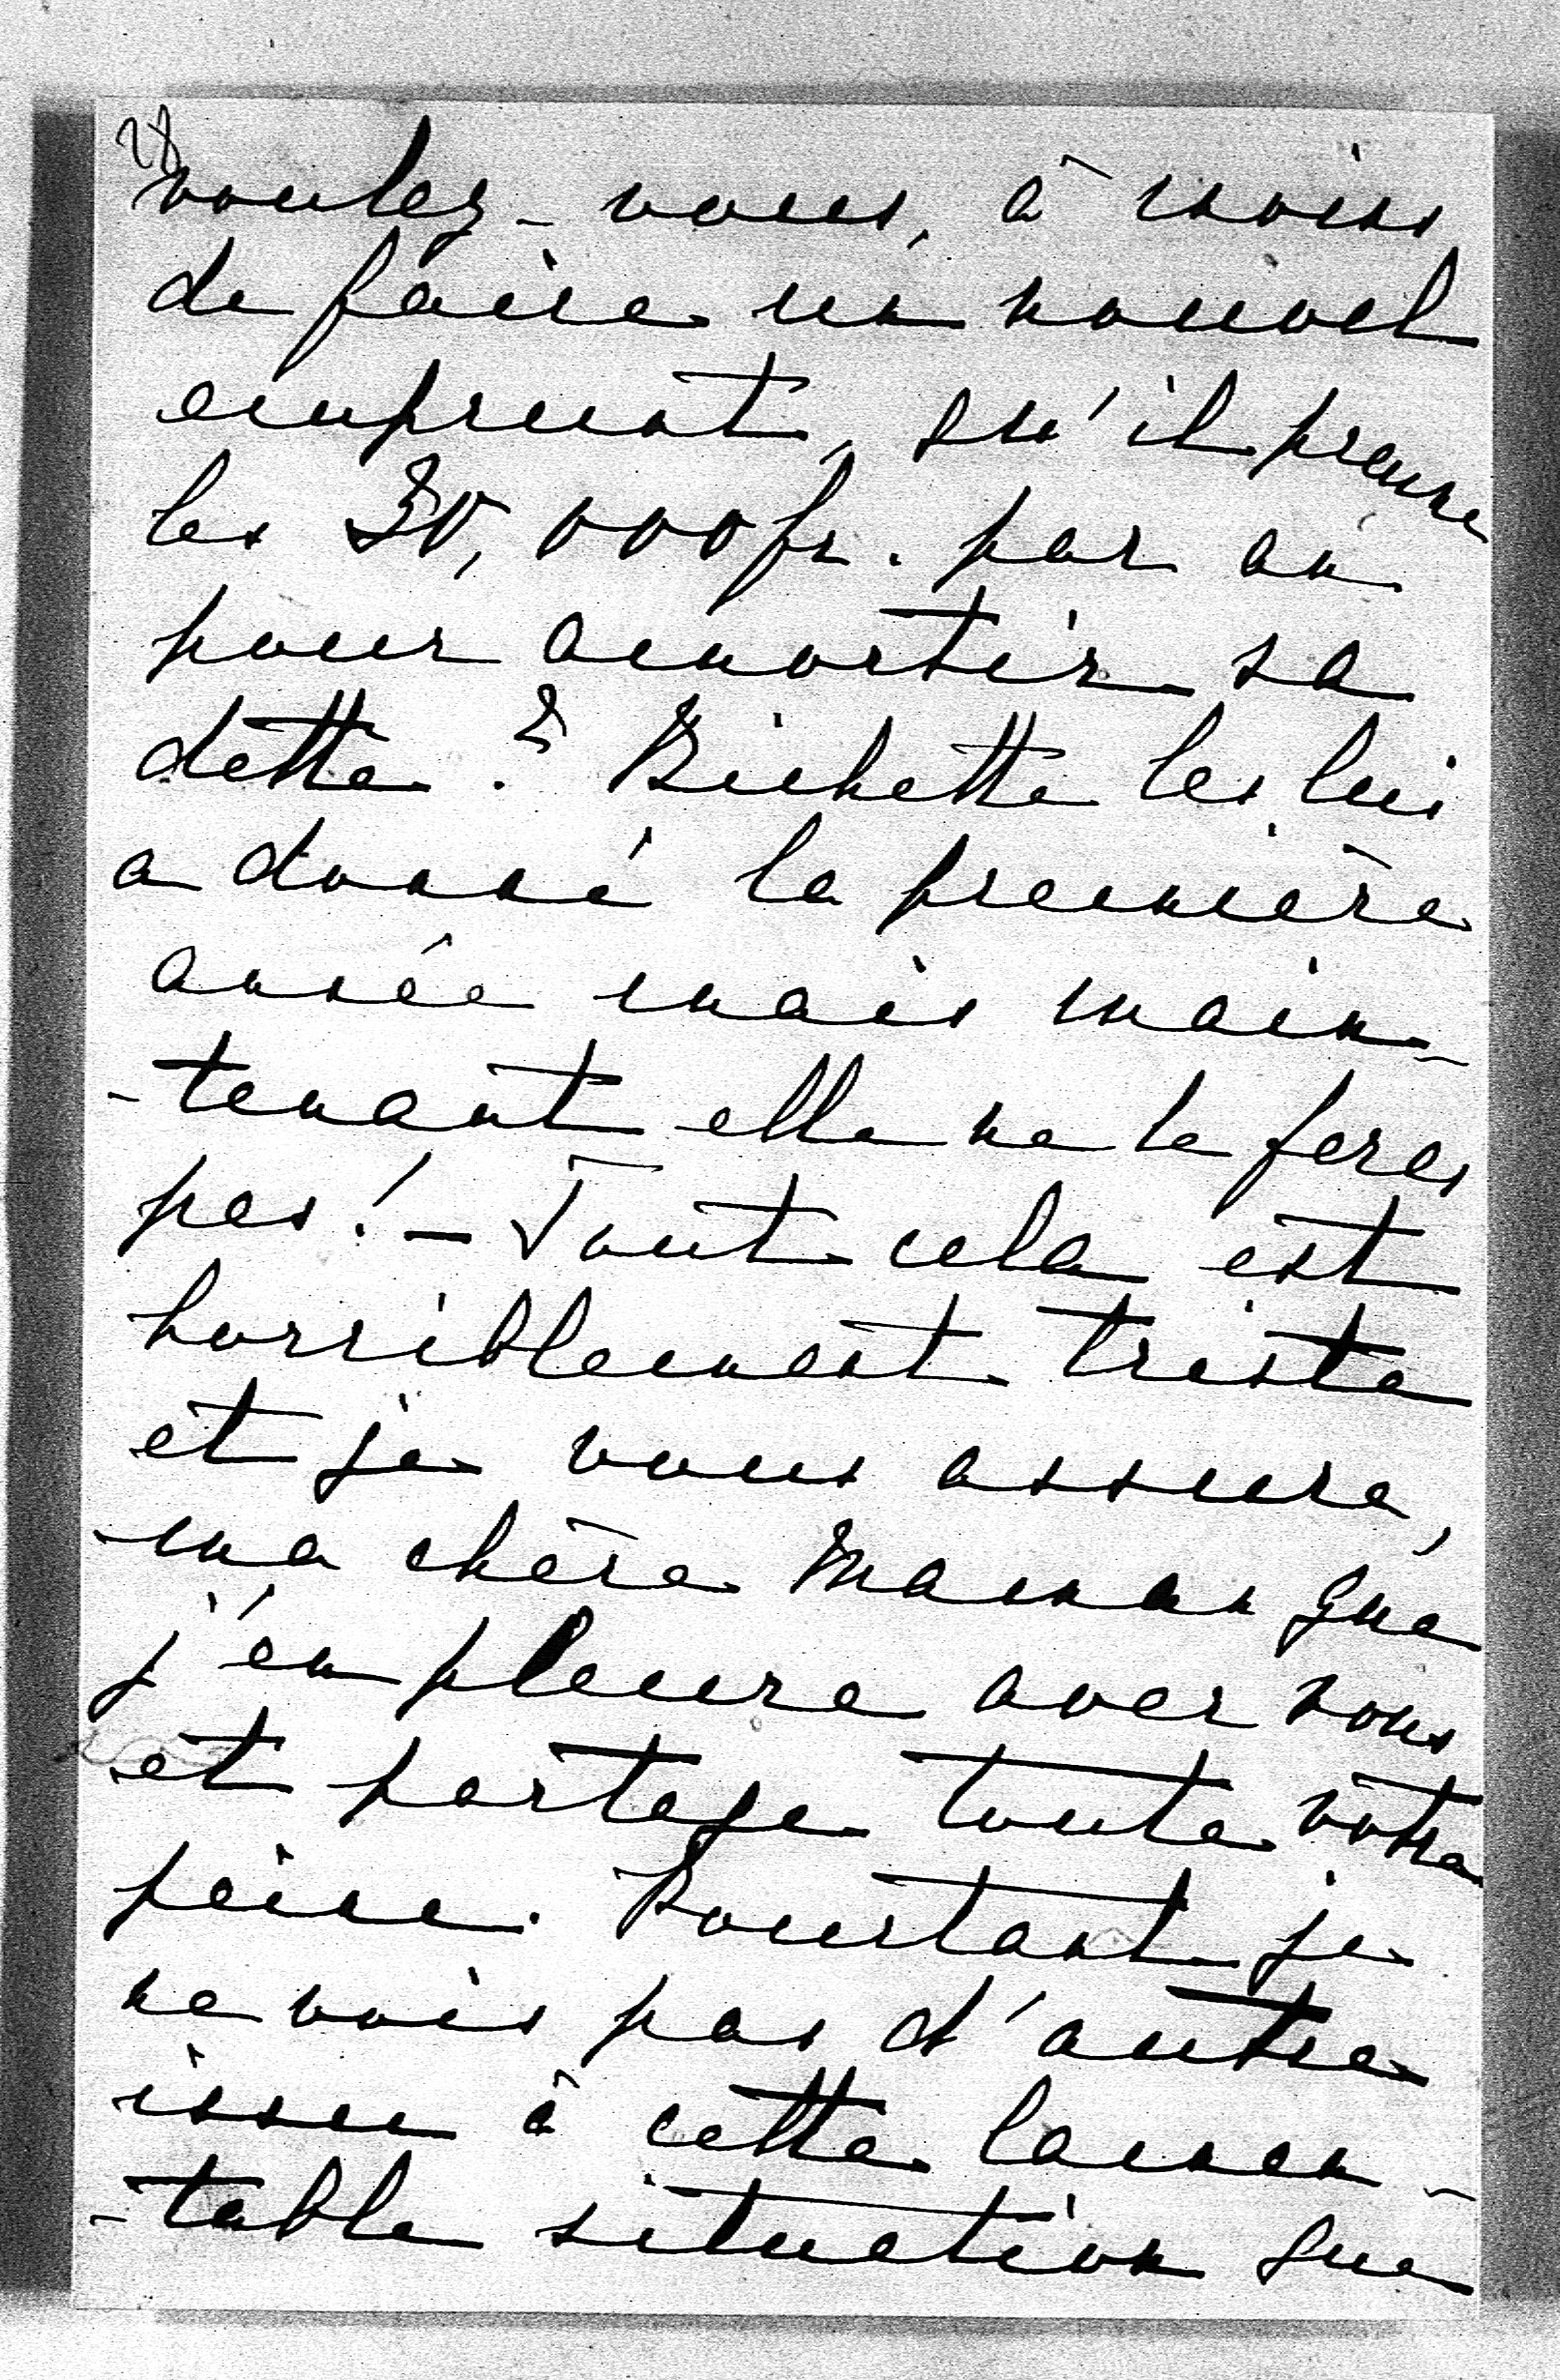 28
voulez-vous, à moins
de faire un nouvel
emprunt, qu'il prenne
les 30,000 fr. par an
pour amortir sa
dette ? Bichette les lui
a donné la première
année mais main-
-tenant elle ne le fera
pas ! — Tout cela est
horriblement triste
et je vous assure,
ma chère Maman que
j'en pleure avec vous
et partage toute votre
peine. Pourtant je
ne vois pas d'autre
issue à cette lamen-
-table situation que